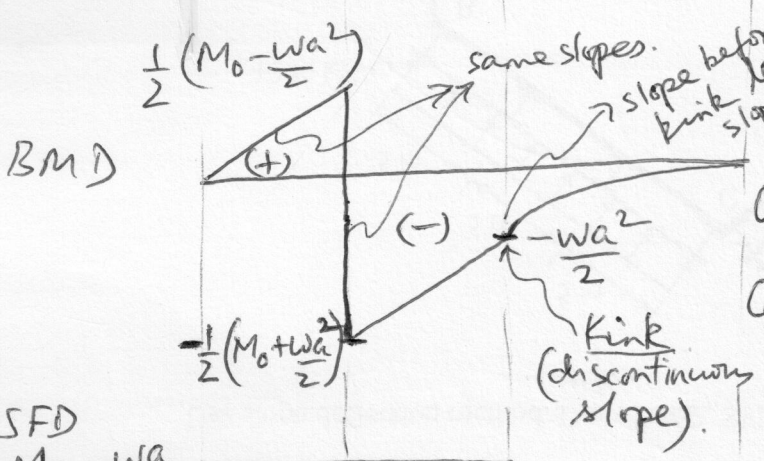 ½ (M₀ - wa²/2)
same slopes.
slope before
kink
BMD
(+)
(-)
-wa²/2
-½ (M₀ + wa²/2)
Kink
(discontinuous
slope).
SFD